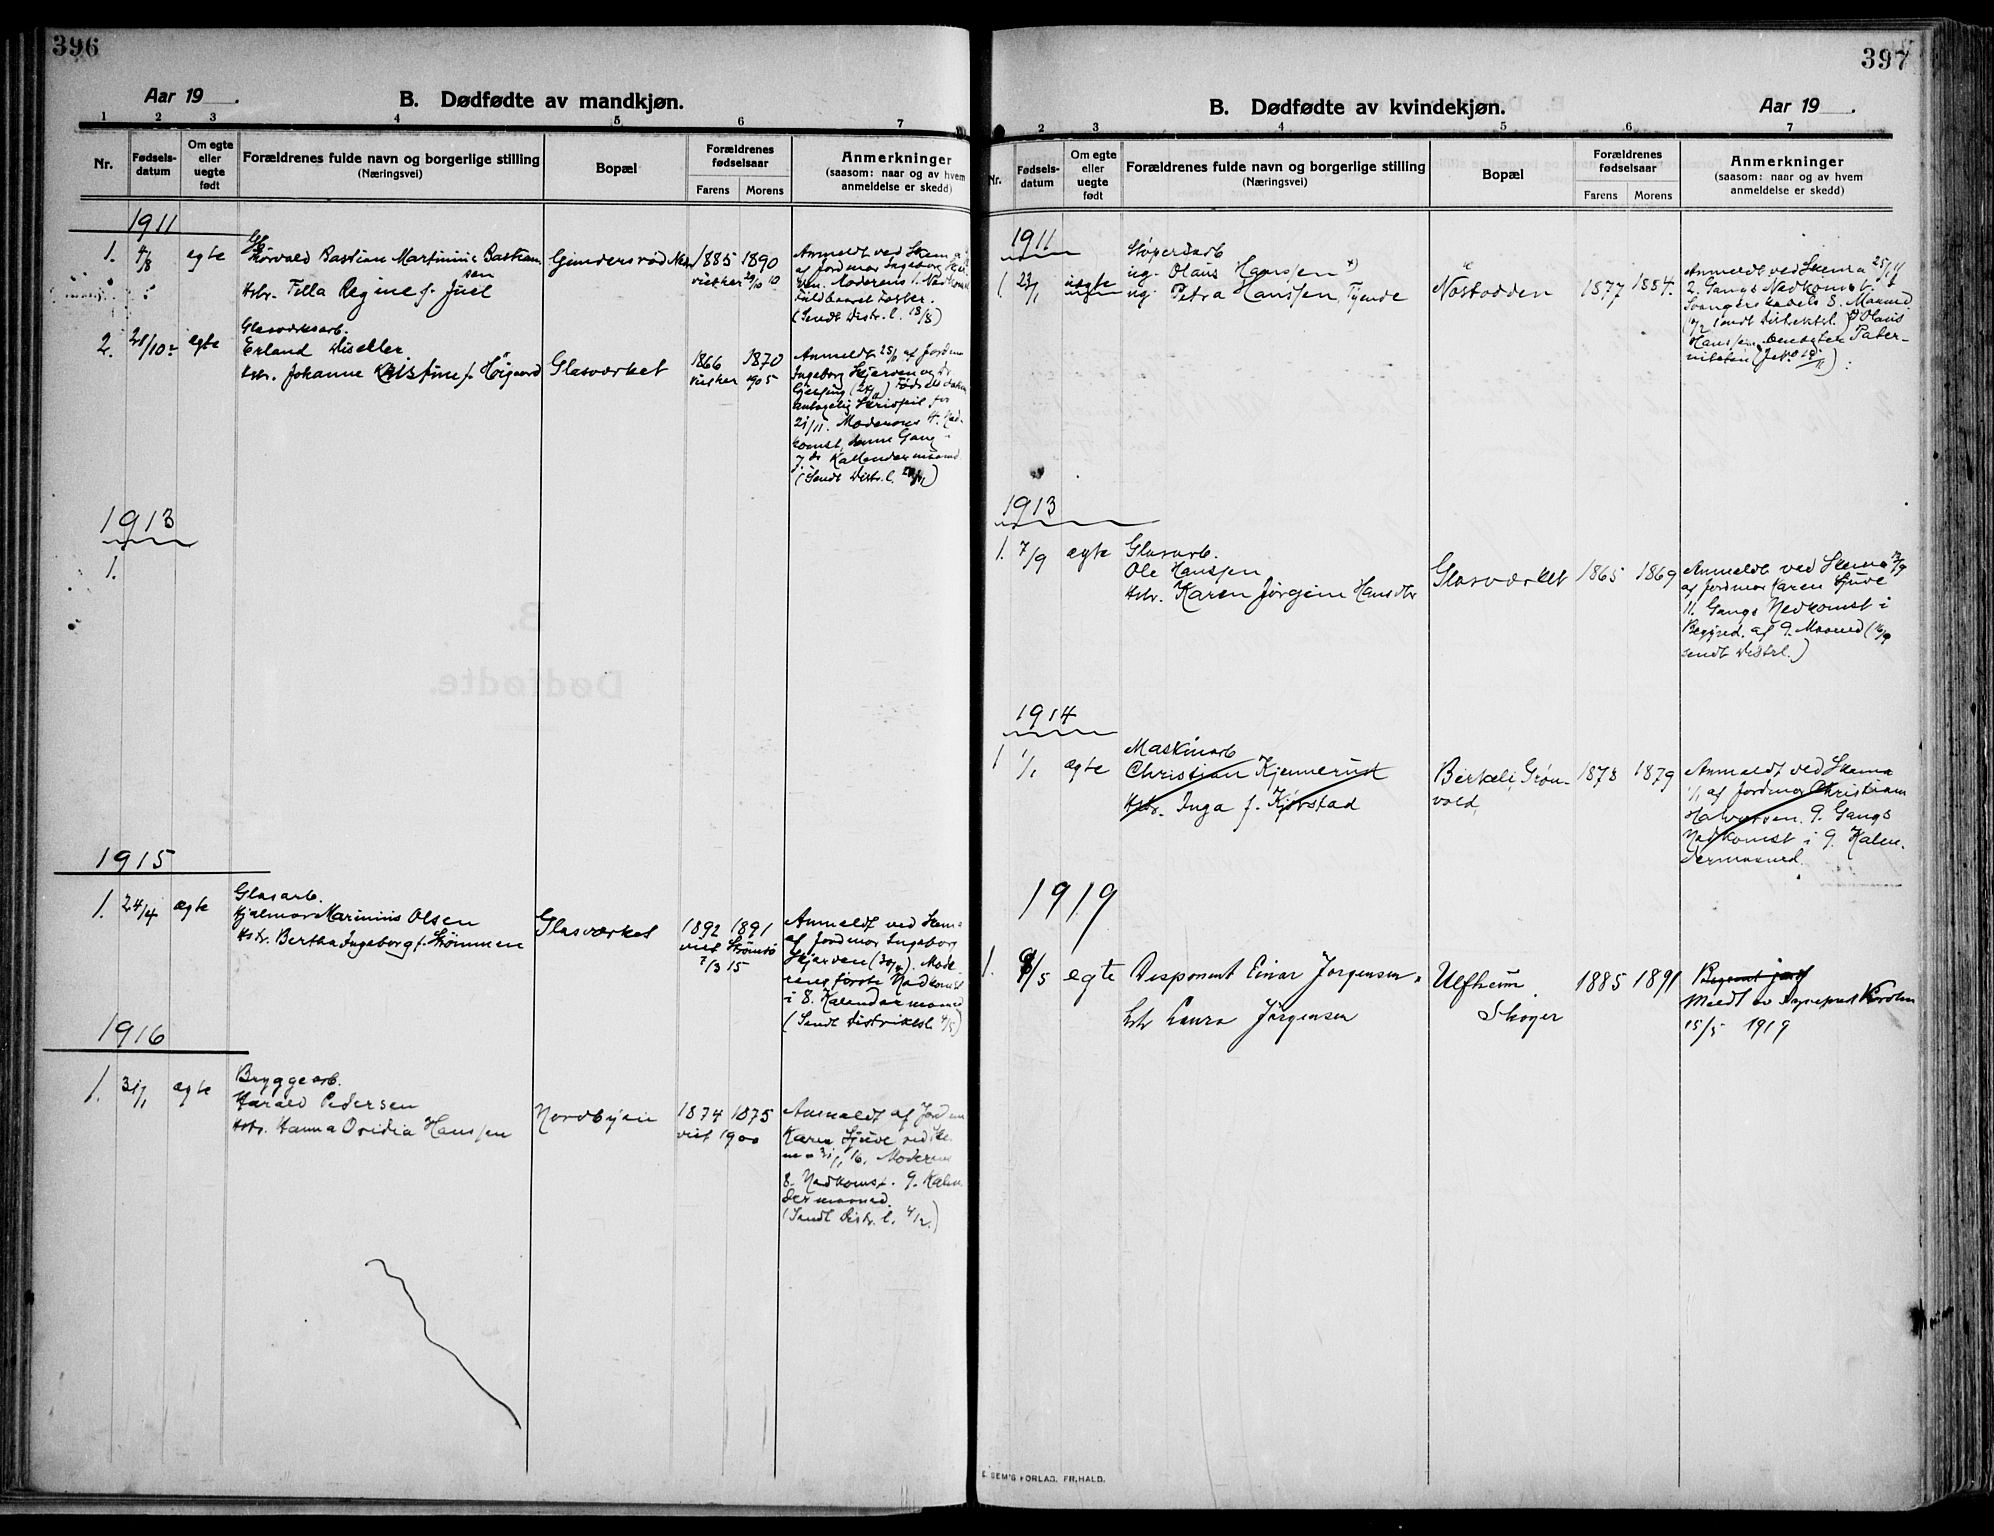 396
Aar 19
B. Dødfødte av mandkjøn.
1 2 3 4 5 6 7
Nr.
Fødsels-
datum
Om egte
eller
uegte
født
Forældrenes fulde navn og borgerlige stilling
(Næringsvei)
Bopæl
Forældrenes
fødselsaar
Farens Morens
Anmerkninger
(saasom: naar og av hvem
anmeldelse er skedd)
1911
1. 4/8 egte
Thorvald Bastian Martinius Bastian-
sen
Hstr. Tilla Regine f. Juel
Gundersrød
1885 1890
viet her 29/10 10
Anmeldt ved Skema
af Jordmor Ingeborg
Moderens 1. Nedkomst
Fuldbaaret Foster.
(Sendt Distr. l. 18/8)
2. egte
Glasværksarb.
Erland
Hstr. Johanne Kristine f. Høigaard
Glasværket
1866 1870
viet her 1905
Anmeldt 25/11 af Jordm
Ingeborg Skjerven og Dr.
Fødselsdatum
antagelig Skrivfeil for
21/11. Moderens 4. Ned-
komst, denne Gang i
7de Kallendermaaned.
(Sendt Distr. l.
1913
1.
1915
1. 24/4 ægte
Glasarb.
Hjalmar Marinius Olsen
Hstr. Bertha Ingeborg f. Strømmen
Glasværket
1892 1891
viet Strømsø
7/3 15
Anmeldt ved Skema
af Jordmor Ingeborg
Skjerven (30/4). Mode-
rens første Nedkomst
i 8. Kalendermaaned
(Sendt Distriktsl. 4/5)
1916
1. 31/1 ægte
Bryggearb.
Harald Pedersen
Hstr. Hanna Ovidia Hanssen
Nordbyen
1874 1875
viet 1900
Anmeldt af Jordm
Karen Sjuve ved Ske-
ma 31/1 16. Moderens
8. Nedkomst. 9. Kalen-
dermaaned.
(Sendt Distr. l. 4/2.)
397
B. Dødfødte av kvindekjøn.
Aar 19
2 3 4 5 6 7
Nr.
Fødsels-
datum
Om egte
eller
uegte
født
Forældrenes fulde navn og borgerlige stilling
(Næringsvei)
Bopæl
Forældrenes
fødselsaar
Farens Morens
Anmerkninger
(saasom: naar og av hvem
anmeldelse er skedd)
1911
1. 23/1 uegte
ug. Olaus Hanssen x)
ug. Petra Hanssen, Tjende
Nøstodden
1877 1884.
Anmeldt ved Skema
2. Gangs Nedkomst i
Svangerskabets 8. Maaned
sendt Distriktsl.) x) Olaus
Hanssen benegter Pater-
niteten
1913
1. 7/9 ægte
Glasarb.
Ole Hanssen
Hstr. Karen Jørgine Hansdtr
Glasværket
1865 1869
Anmeldt ved Skema 13/9
af Jordmor Karen Sjuve
11. Gangs Nedkomst i
Begynd. af 9. Maaned (16/9
sendt Distrl.)
1914
1 1/1 ægte
Maskinarb
Christian Kjennerud
Hstr. Inga f. Kjørstad
Birkeli, Grøn-
vold,
1873 1879
Anmeldt ved Skema
1/1 af Jordmor Christiane
Halvorsen. 9. Gangs
Nedkomst i 9. Kalen-
dermaaned.
1919
1. 8/5 egte
Disponent Einar Jørgensen
Hstr Laura Jørgensen
Ulfheim
Skoger
1885 1891
Meldt av
15/5 1919
E. SEM'S FORLAG. FR.HALD.